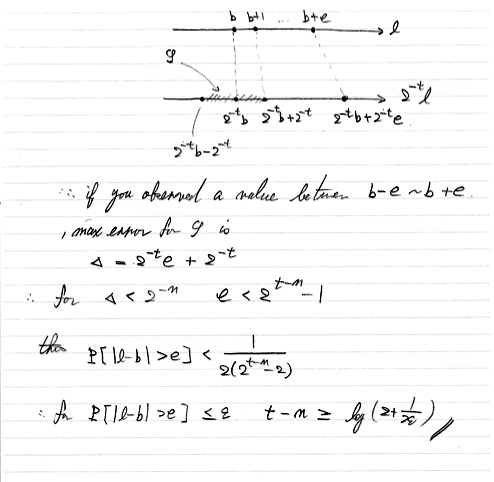 b b+1 ... b+e
l
φ
2^{-t}l
2^{-t}b 2^{-t}b+2^{-t} 2^{-t}b+2^{-t}e
2^{-t}b-2^{-t}
∴ if you observed a value between b-e ~ b+e
, max error for φ is
Δ = 2^{-t}e + 2^{-t}
∴ for Δ < 2^{-n} e < 2^{t-n}-1
P[|l-b|>e] < 1/(2(2^{t-n}-2))
∴ for P[|l-b|>e] ≤ ε t-n ≥ log(2+1/2ε)